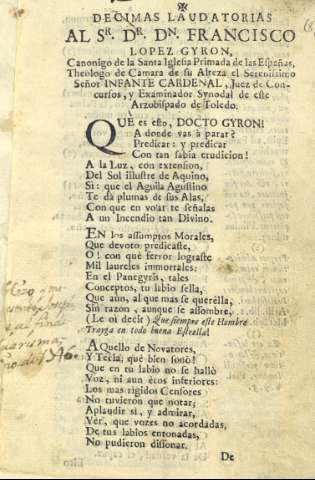 DECIMAS LAUDATORIAS
AL Sr. Dr. Dn. FRANCISCO
LOPEZ GYRON,
Canonigo de la Santa Iglesia Primada de las Españas,
Theologo de Camara de su Alteza el Serenissimo
Señor INFANTE CARDENAL, Juez de Con-
cursos, y Examinador Synodal de este
Arzobispado de Toledo.
QUE es esto, DOCTO GYRON!
A donde vas à parar?
Predicar: y predicar
Con tan sabia erudicion!
A la Luz, con extension,
Del Sol illustre de Aquino,
Si: que el Aguila Agustino
Te dà plumas de sus Alas,
Con que en volar te señalas
A un Incendio tan Divino.
EN los assumptos Morales,
Que devoto predicaste,
O! con què fervor lograste
Mil laureles immortales:
En el Panegyris, tales
Conceptos, tu labio sella,
Que aùn, al que mas se querèlla,
Sin razòn, aunque se assombre,
(Le oì decir) Que siempre este Hombre
Trayga en todo buena Estrella!
AQuello de Novatores,
Y Tecla; què bien sonò!
Que en tu labio no se hallò
Voz, ni aun ecos inferiores:
Los mas rigidos Censores
No tuvieron que notar;
Aplaudir si, y admirar,
Vèr, que vozes no acordadas,
De tus labios entonadas,
No pudieron dissonar.
De